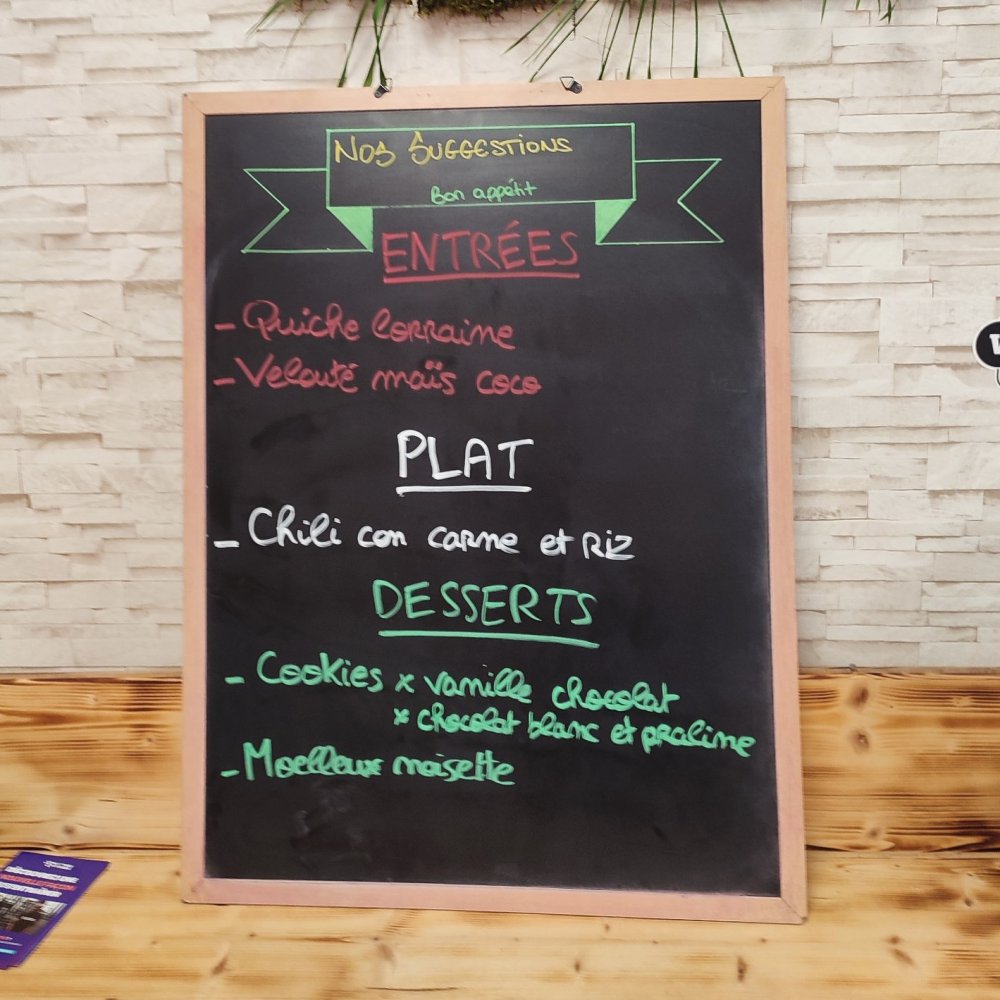 Nos Suggestions
Bon appétit
ENTRÉES
- Quiche lorraine
- Velouté maïs coco
PLAT
- Chili con carne et Riz
DESSERTS
- Cookies x vanille chocolat
x chocolat blanc et praline
- Moelleux noisette